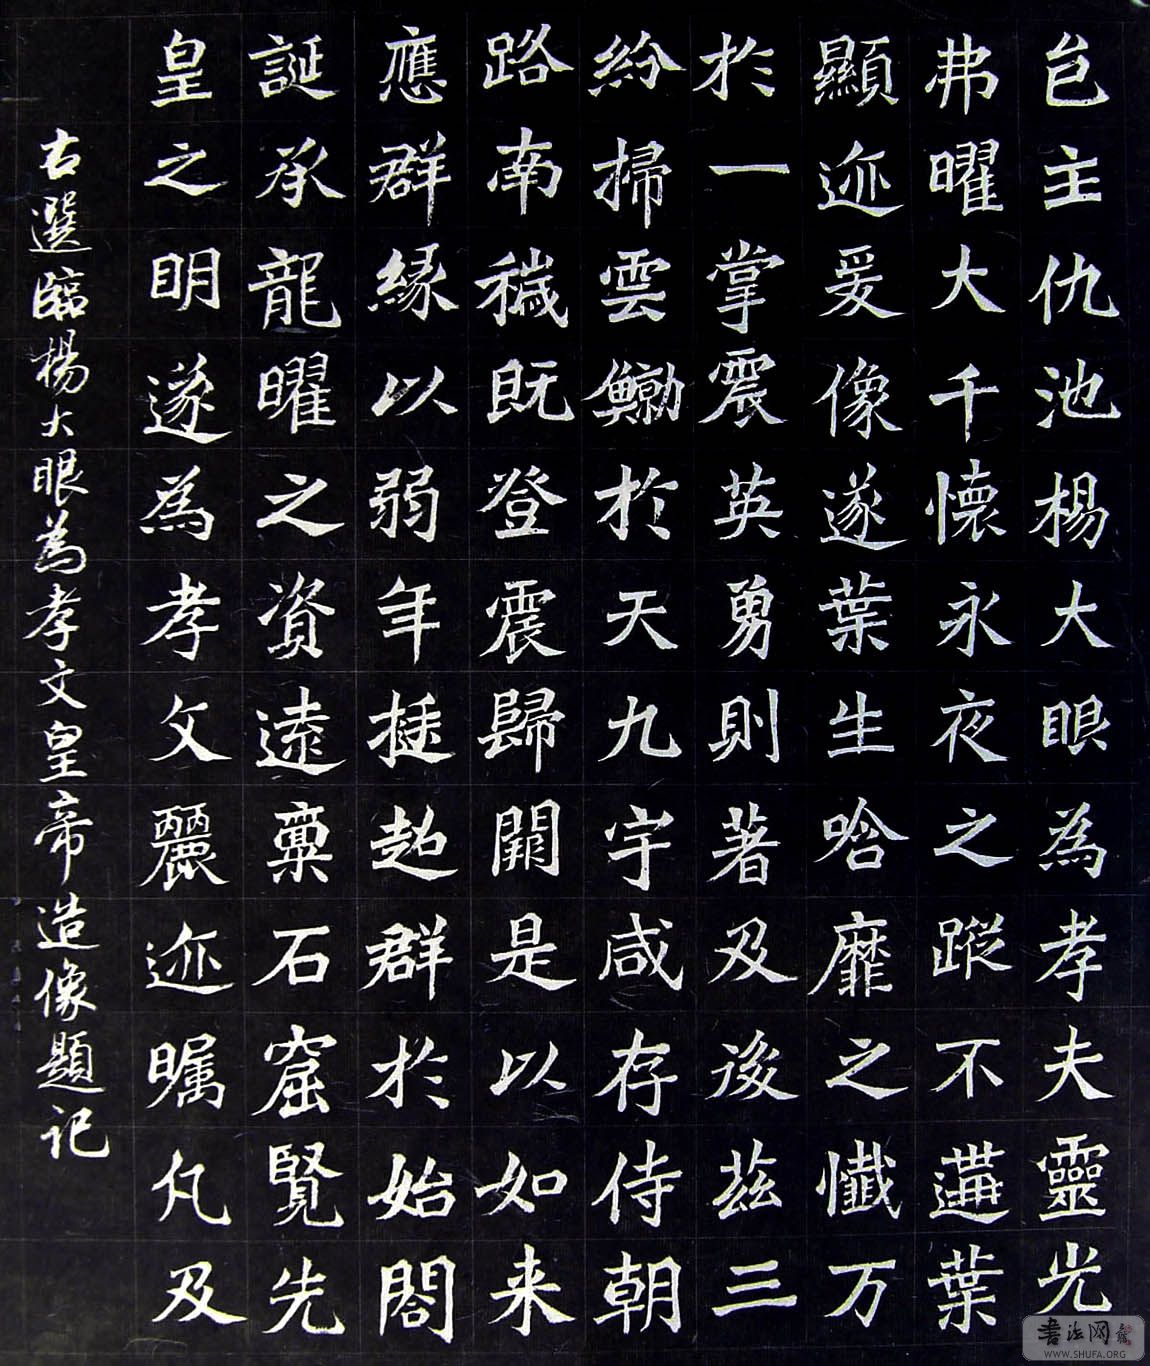 邑主仇池楊大眼為孝夫靈光
弗曜大千懷永夜之蹤不遘葉
顯迹爰像遂葉生唅靡之懺万
於一掌震英勇則著及後茲三
紛掃雲於天九宇咸存侍朝
路南穢既登震歸闕是以如来
應群緣以弱年挺超群於始閤
誕承龍曜之資遠稟石窟覽先
皇之明遂為孝文麗迹矚凡及
古選臨楊大眼為孝文皇帝造像題记
书法网
WWW.SHUFA.ORG